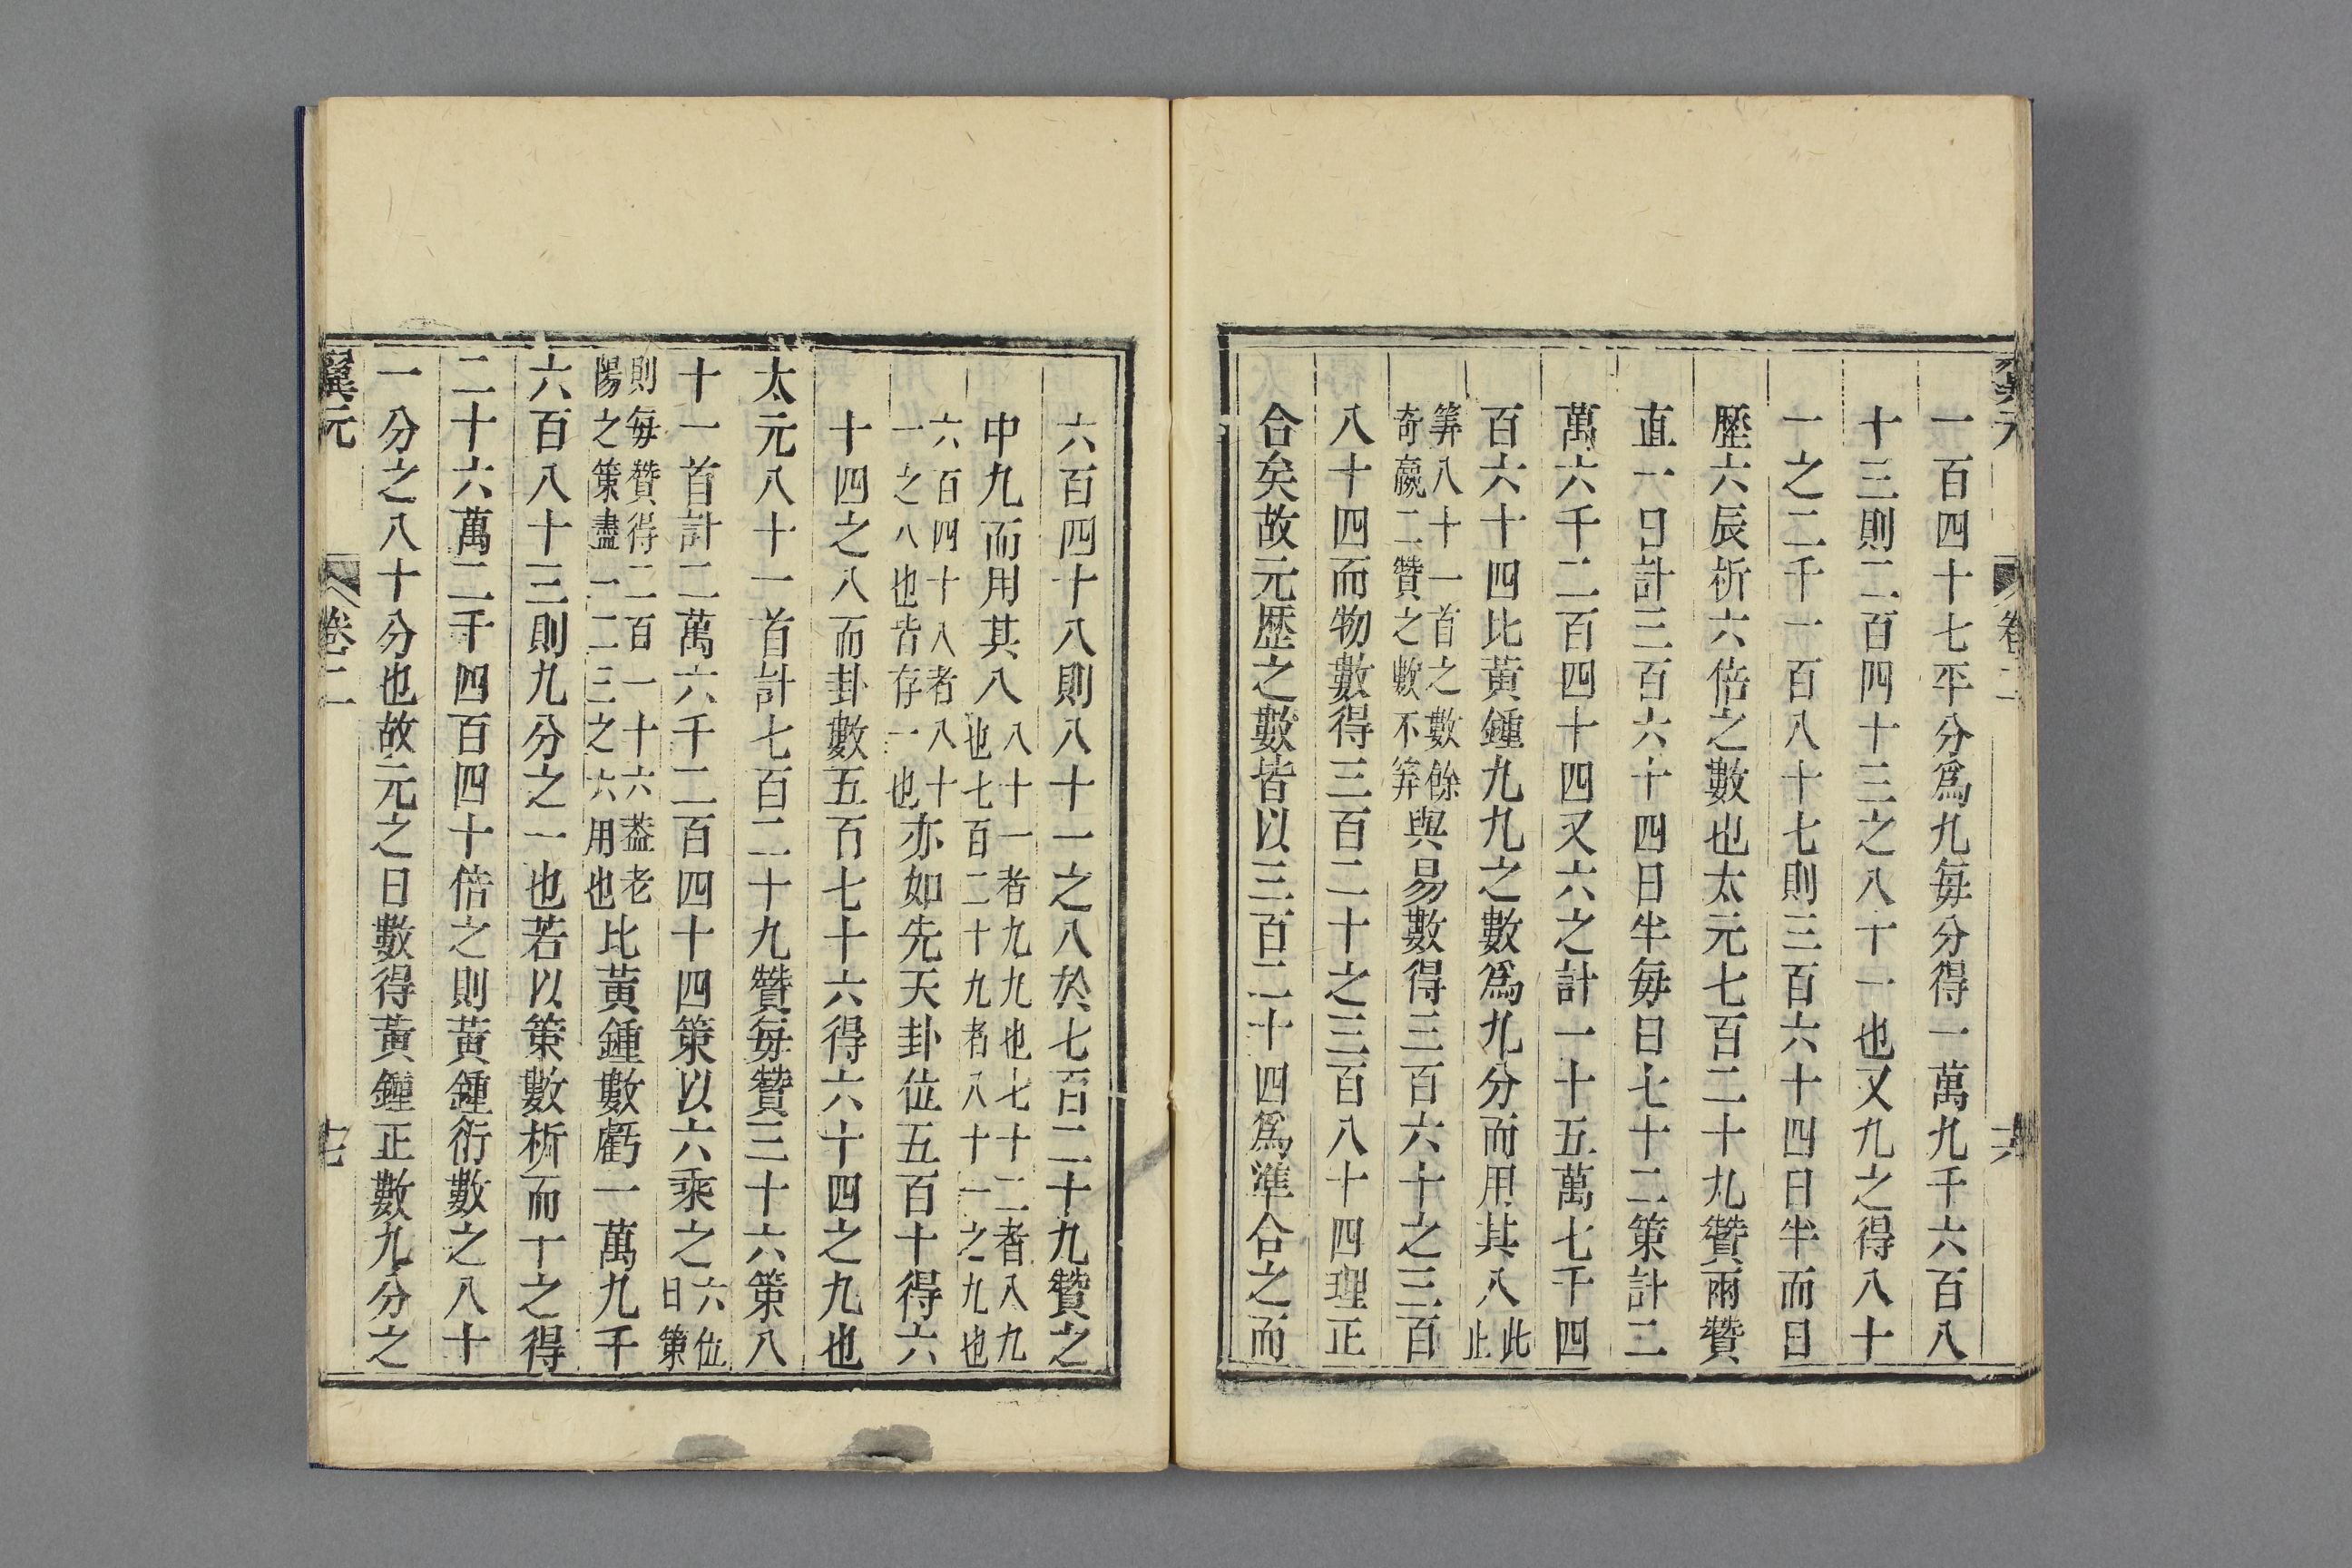 翼元
卷二
六
一百四十七平分爲九每分得一萬九千六百八
十三則二百四十三之八十一也又九之得八十
一之二千一百八十七則三百六十四日半而日
歷六辰析六倍之數也太元七百二十九贊兩贊
直一日計三百六十四日半每日七十二策計二
萬六千二百四十四又六之計一十五萬七千四
百六十四比黃鍾九九之數爲九分而用其八此
止
筭八十一首之數餘
奇嬴二贊之數不筭與易數得三百六十之三百
八十四而物數得三百二十之三百八十四理正
合矣故元歷之數皆以三百二十四爲準合之而
六百四十八則八十一之八於七百二十九贊之
中九而用其八八十一者九九也七十二者八九
也七百二十九者八十一之九也
六百四十八者八十
一之八也皆存一也亦如先天卦位五百十得六
十四之八而卦數五百七十六得六十四之九也
太元八十一首計七百二十九贊每贊三十六策八
十一首計二萬六千二百四十四策以六乘之六位
日策
則每贊得二百一十六葢老
陽之策盡一二三之六用也比黃鍾數虧一萬九千
六百八十三則九分之一也若以策數析而十之得
二十六萬二千四百四十倍之則黃鍾衍數之八十
一分之八十分也故元之日數得黃鍾正數九分之
翼元
卷二
十七